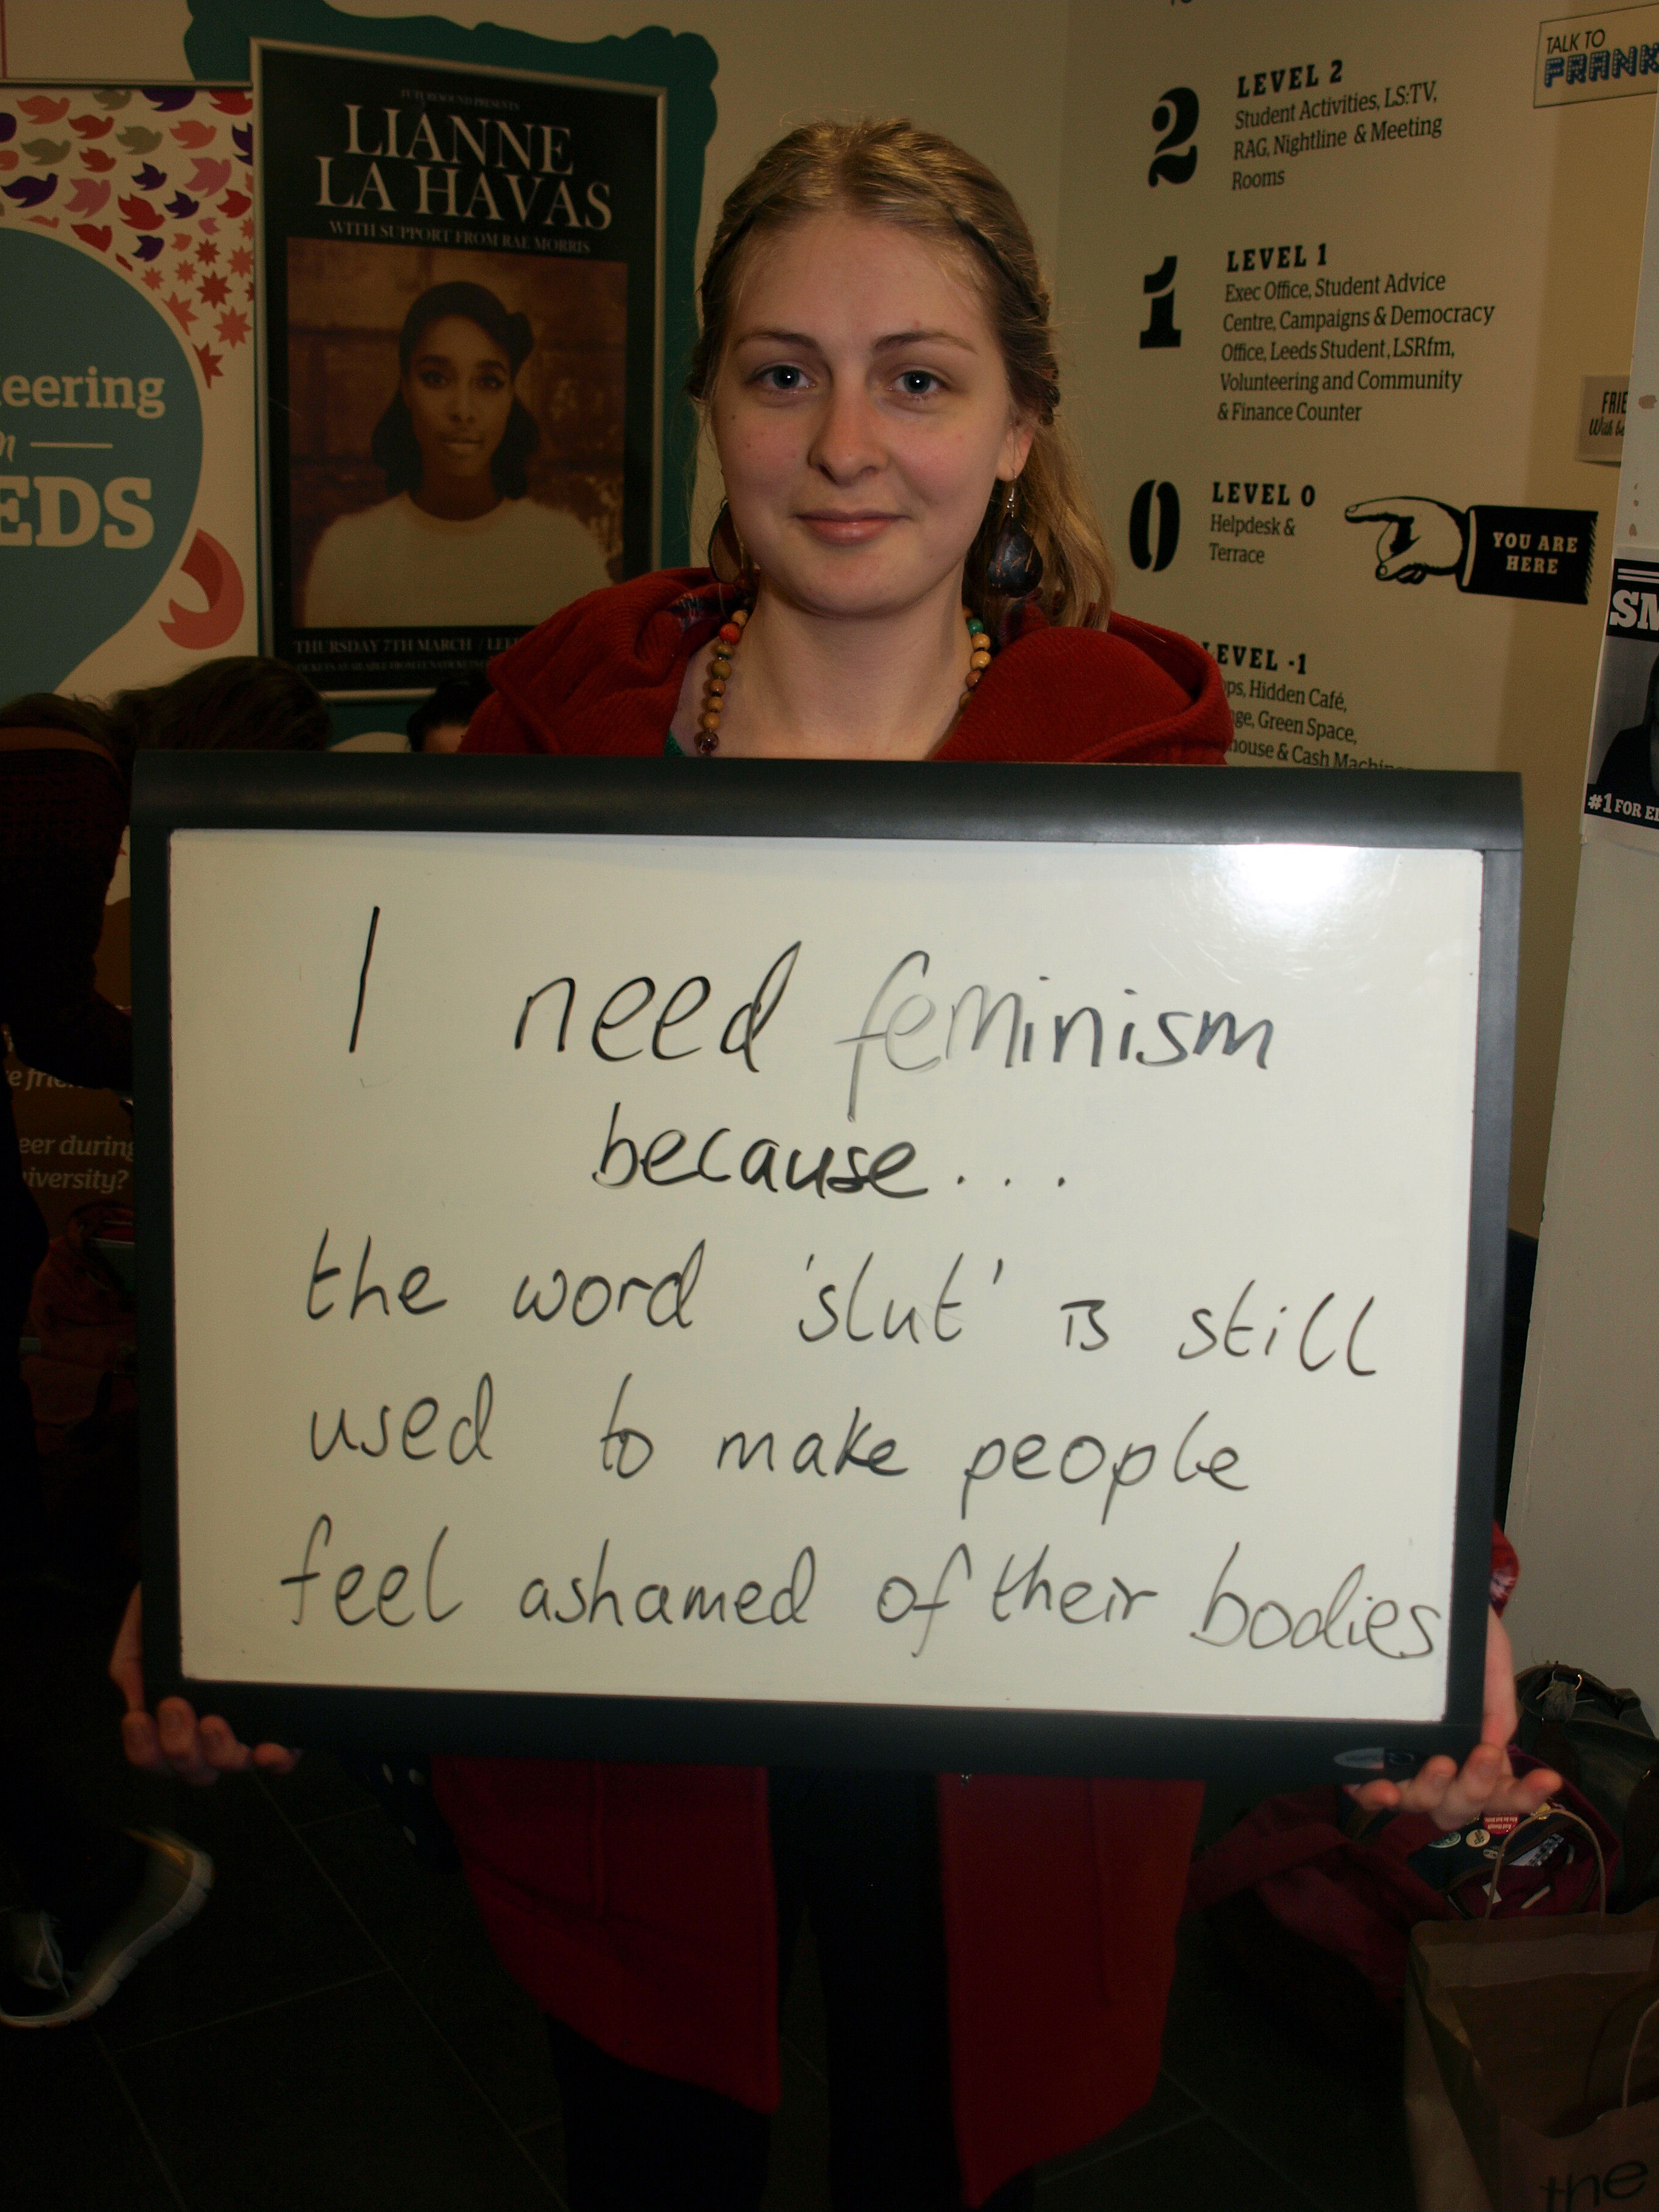 I need feminism
because...
the word 'slut' is still
used to make people
feel ashamed of their bodies
FUTURESOUND PRESENTS
LIANNE
LA HAVAS
WITH SUPPORT FROM RAE MORRIS
THURSDAY 7TH MARCH /
eering
EDS
2
LEVEL 2
Student Activities, LS:TV,
RAG, Nightline & Meeting
Rooms
1
LEVEL 1
Exec Office, Student Advice
Centre, Campaigns & Democracy
Office, Leeds Student, LSRfm,
Volunteering and Community
& Finance Counter
0
LEVEL 0
Helpdesk &
Terrace
YOU ARE
HERE
LEVEL -1
ops, Hidden Café,
nge, Green Space,
house & Cash Machines
TALK TO
FRANK
FRIE
With
SM
#1 FOR EL
e frie
eer during
iversity?
the